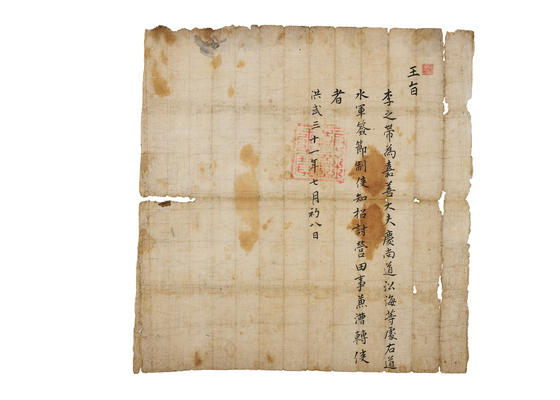 王旨
李之帶爲嘉善大夫慶尚道沿海等處右道
水軍僉節制使知招討營田事兼漕轉使
者
洪武三十一年七月初八日